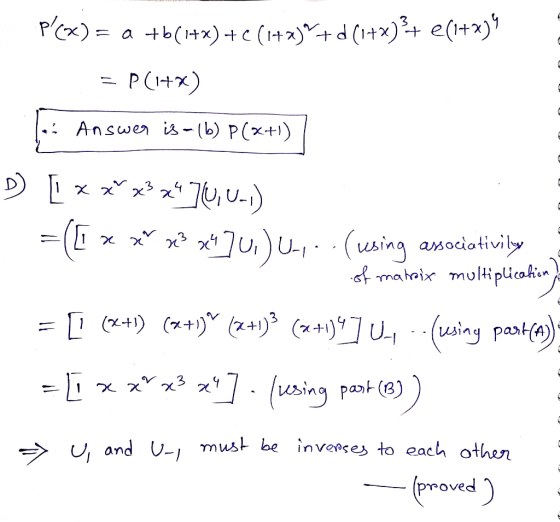 P'(x) = a + b(1+x) + c(1+x)² + d(1+x)³ + e(1+x)⁴
= P(1+x)
∴ Answer is - (b) P(x+1)
D) [1 x x² x³ x⁴](U₁U₋₁)
= ([1 x x² x³ x⁴]U₁)U₋₁ .. (using associativity
of matrix multiplication)
= [1 (x+1) (x+1)² (x+1)³ (x+1)⁴]U₋₁ .. (using part(A))
= [1 x x² x³ x⁴] . (using part(B))
⇒ U₁ and U₋₁ must be inverses to each other
— (proved)